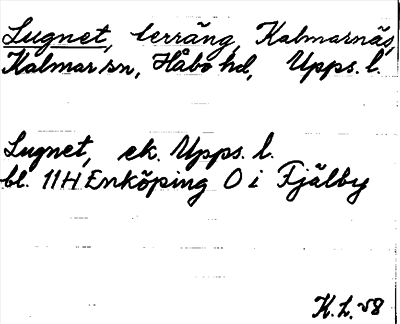 Lugnet, terräng, Kalmarnäs,
Kalmar sn, Håbo hd, Upps. l.
Lugnet, ek. Upps. l.
bl. 11H Enköping O i Fjälby
K.L. 28